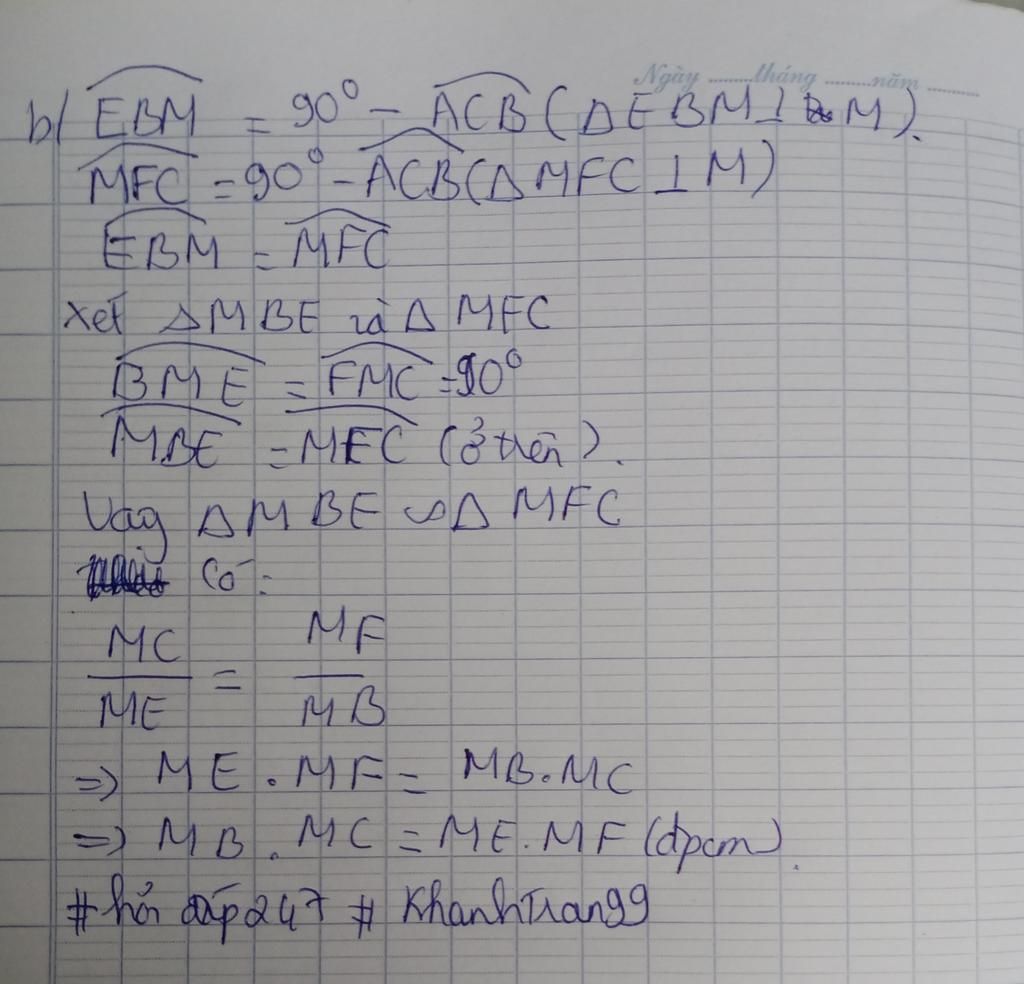 Ngày ........tháng ........năm ........
b/ EBM = 90° - ACB (△EBM ⊥ M).
MFC = 90° - ACB (△MFC ⊥ M)
EBM = MFC
Xét △MBE và △MFC
BME = FMC = 90°
MBE = MFC (ở trên).
Vậy △MBE ∽ △MFC
Có:
MC/ME = MF/MB
=> ME . MF = MB . MC
=> MB . MC = ME . MF (đpcm).
# hỏi đáp 247 # Khanhtran99